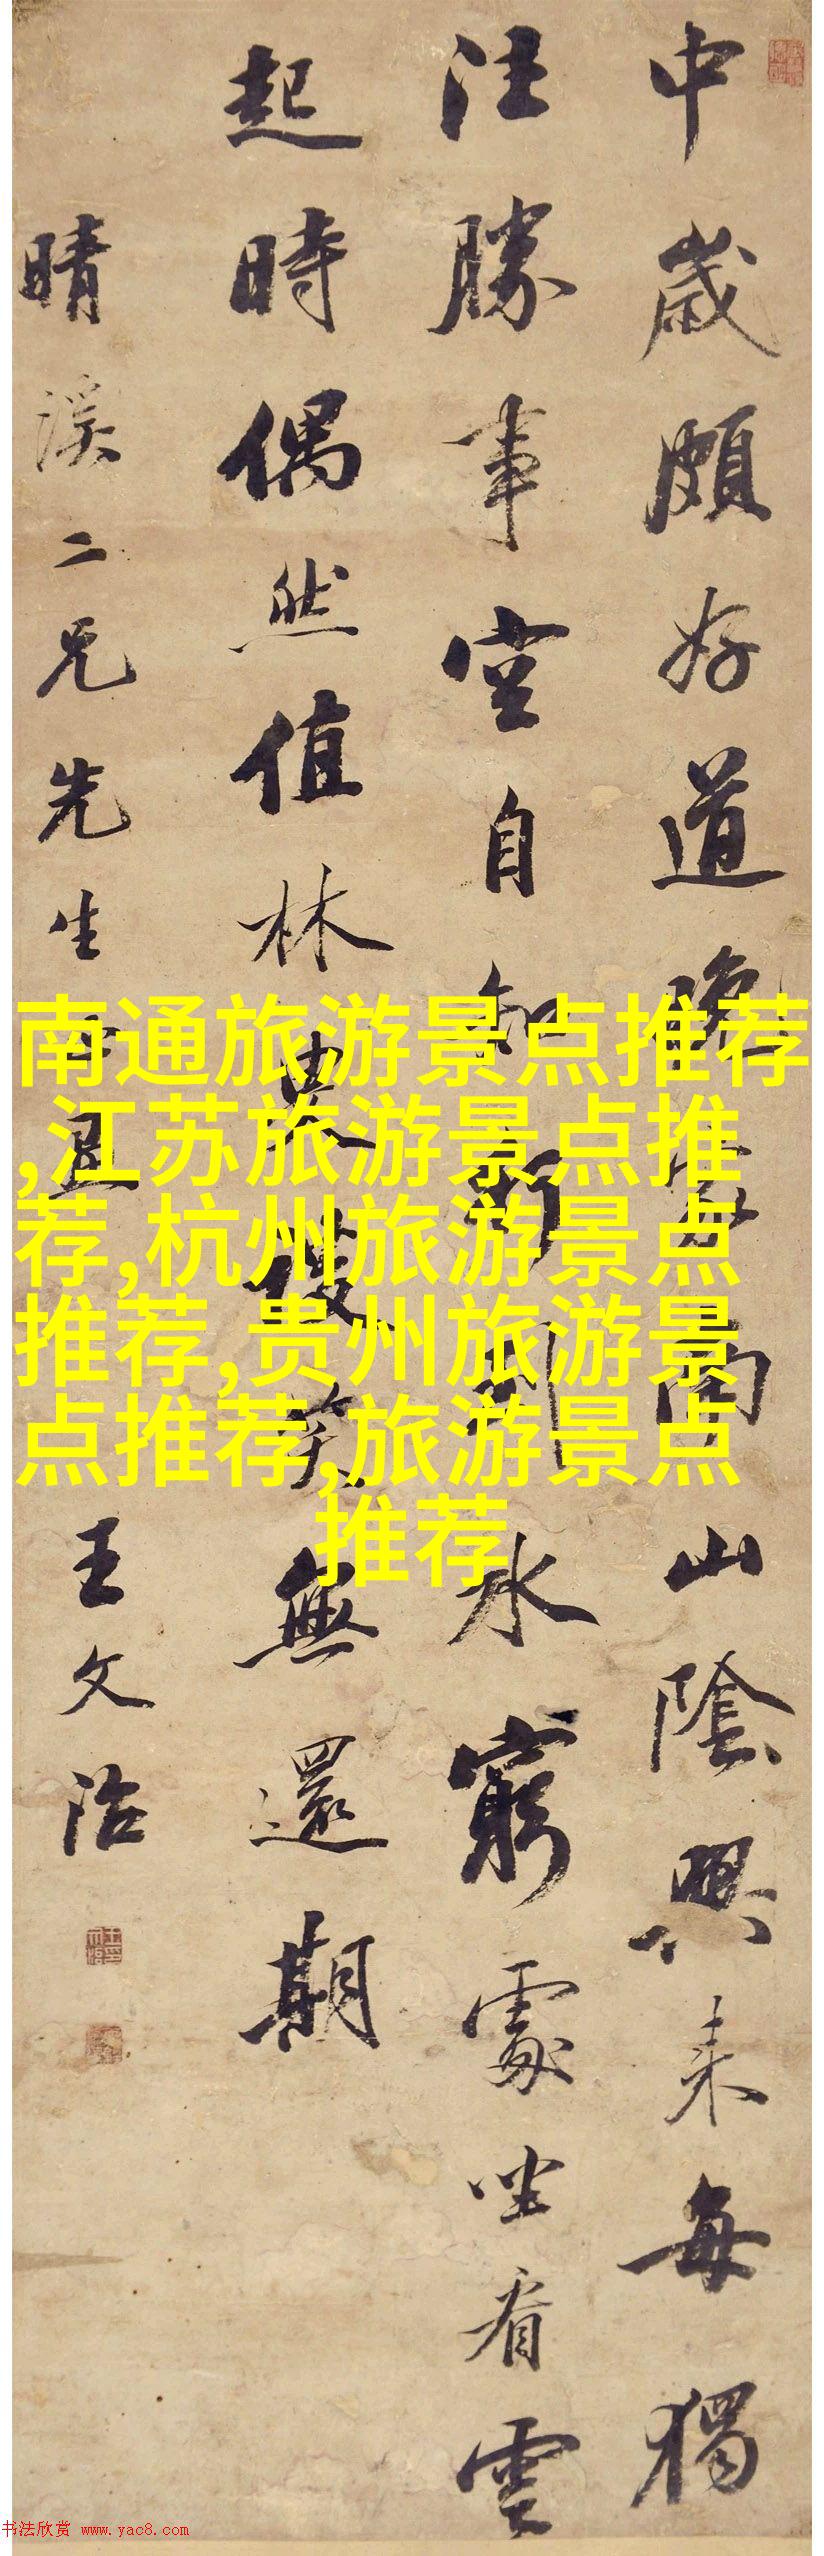 中歲頗好道晚家南山陰興來每獨
往勝事空自知行到水窮處坐看雲
起時偶然值林叟談笑無還期
晴溪二兄先生
王文治
南通旅游景点推荐
,江苏旅游景点推
荐,杭州旅游景点
推荐,贵州旅游景
点推荐,旅游景点
推荐
书法欣赏 www.yac8.com